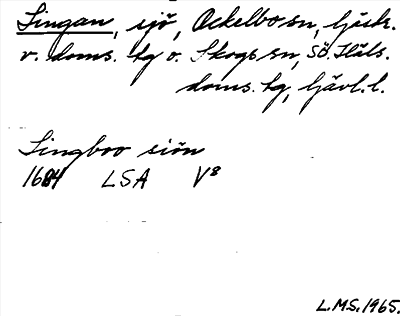 Lingan, sjö, Ockelbo sn, Gästr.
v. doms. hg o. Skogs sn, Sö. Häls.
doms. hg, Gävl. l.
Lingboo siön
1684 LSA V8
L.M.S. 1965.